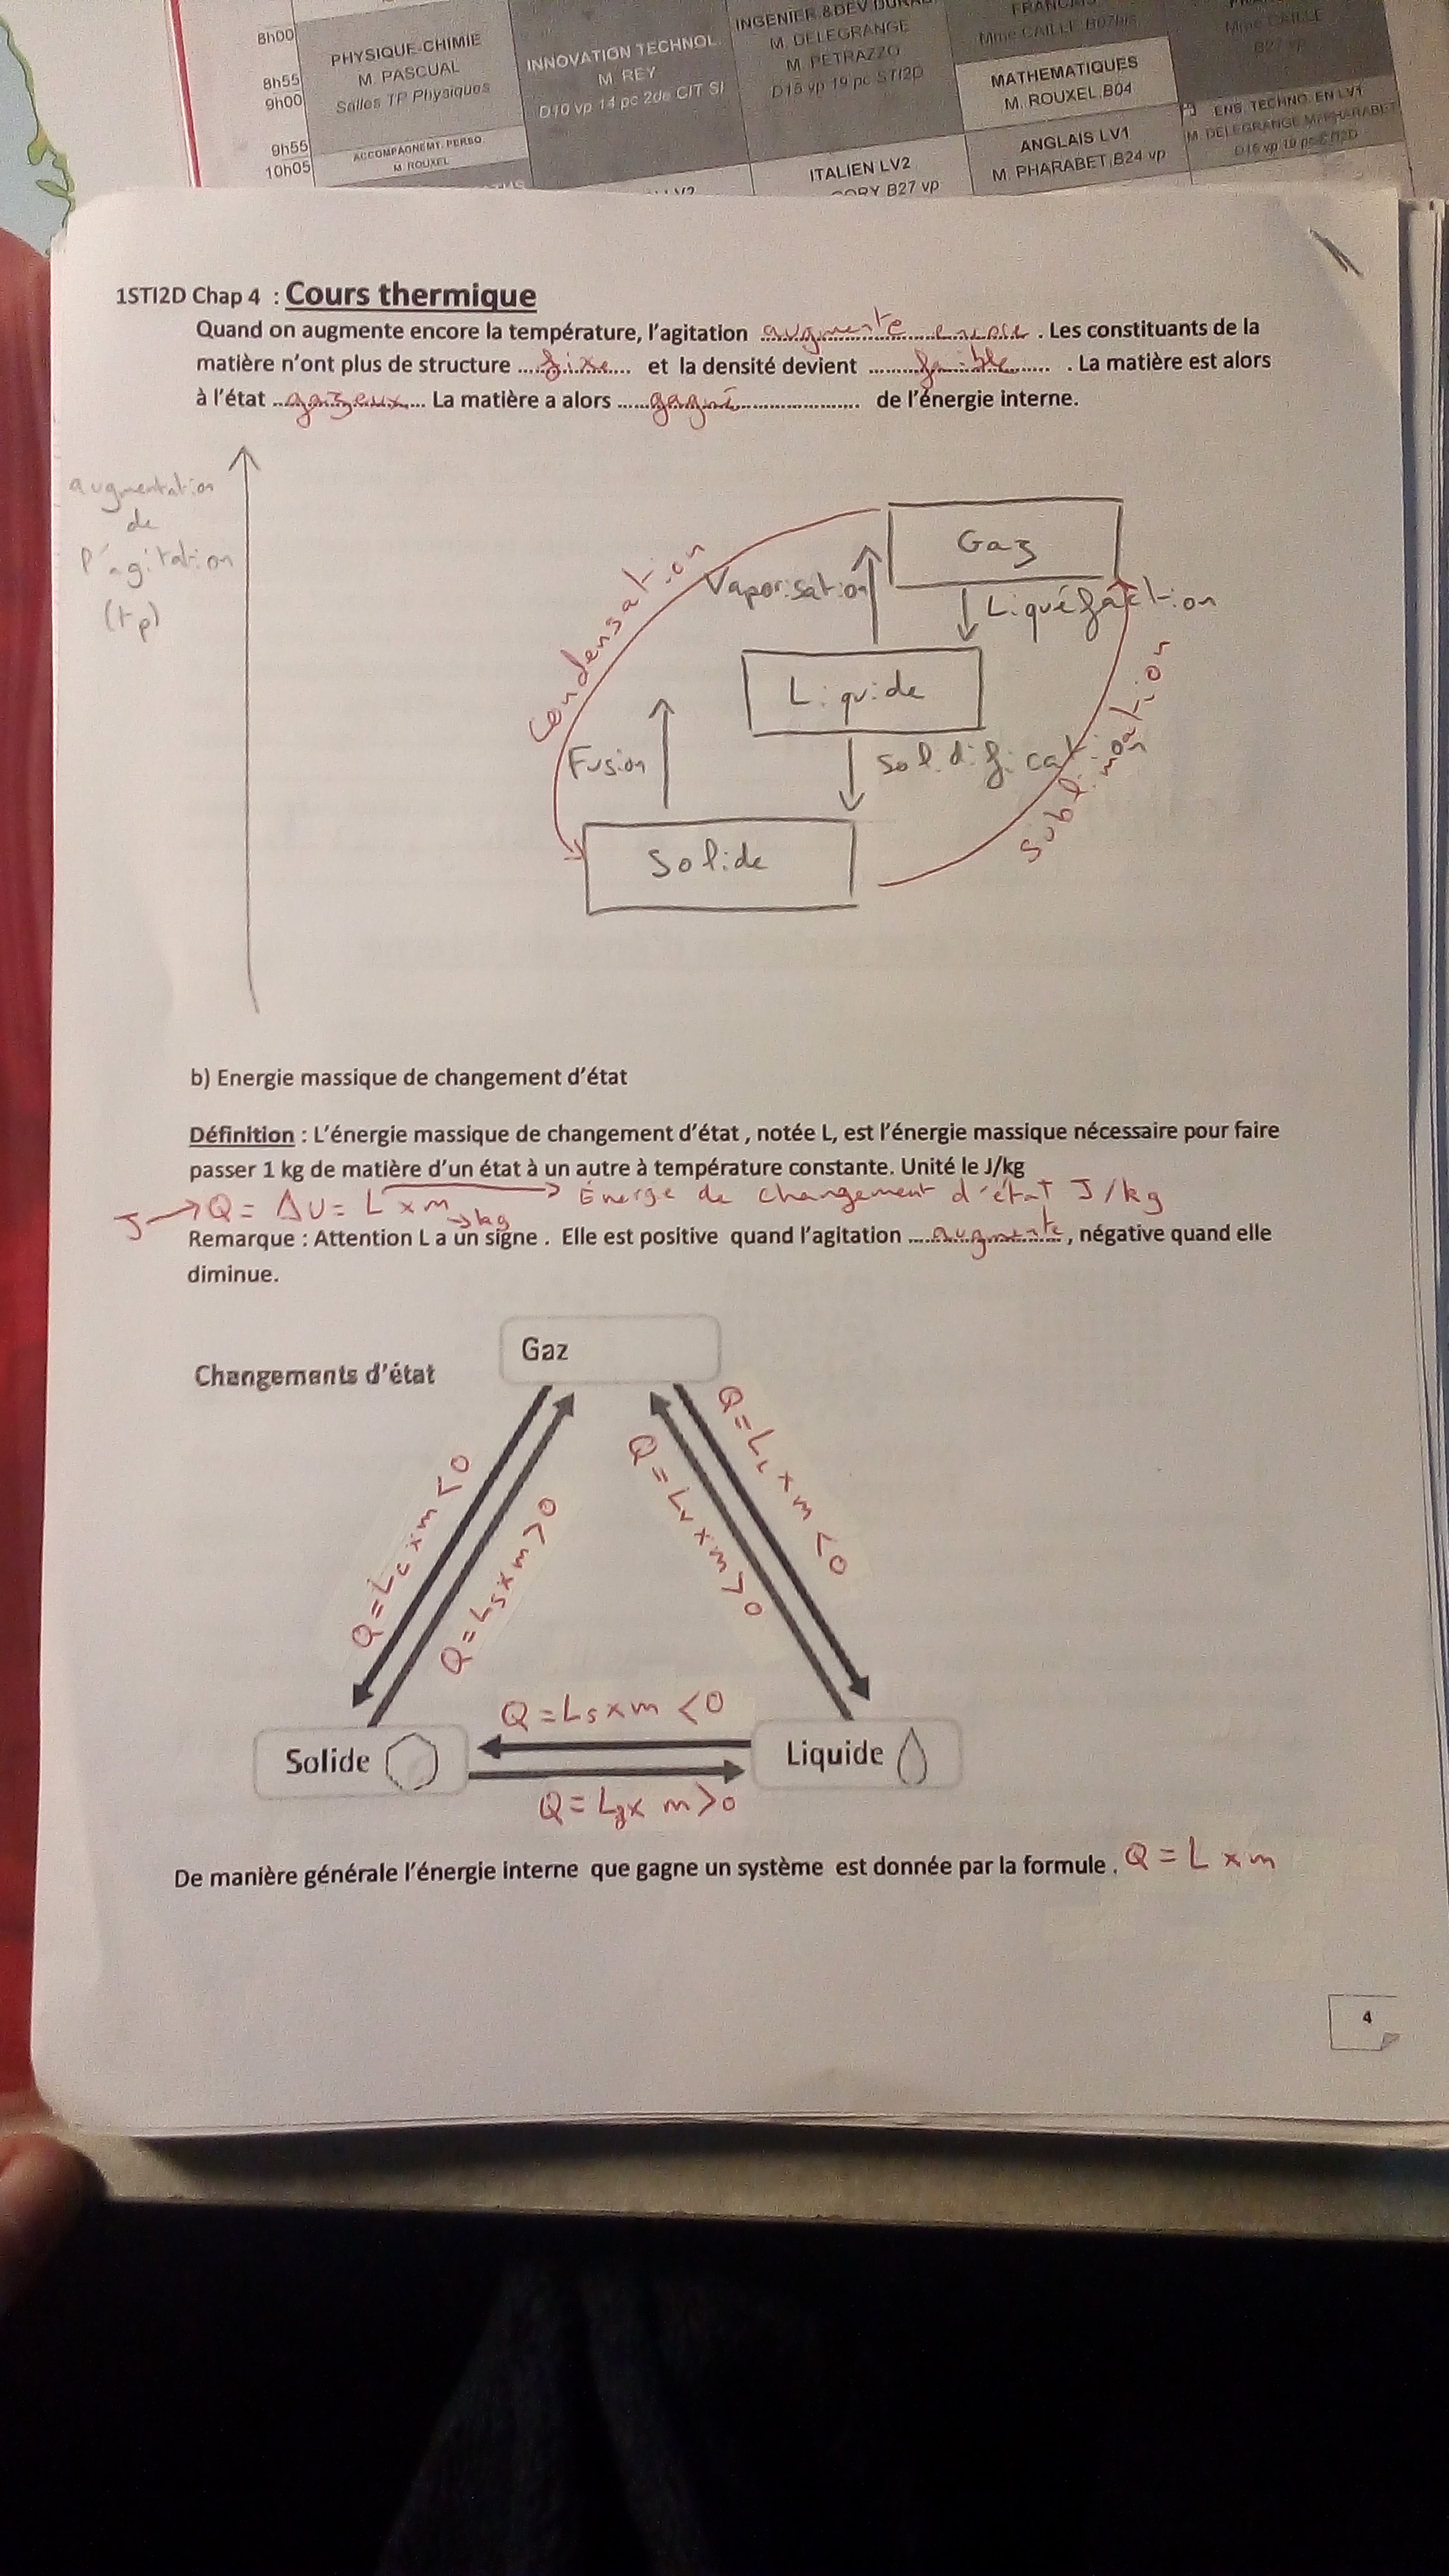 8h00
8h55
9h00
9h55
10h05
PHYSIQUE-CHIMIE
M. PASCUAL
Salles TP Physiques
ACCOMPAGNEMT. PERSO.
M ROUXEL
INNOVATION TECHNOL.
M. REY
D10 vp 14 pc 2de CIT SI
INGENIER.&DEV DURA
M. DELEGRANGE
M. PETRAZZO
D15 vp 19 pc STI2D
ITALIEN LV2
ORY B27 vp
Mme CAILLE B07bis
MATHEMATIQUES
M. ROUXEL B04
ANGLAIS LV1
M. PHARABET B24 vp
Mme CAILLE
B27 vp
ENS. TECHNO. EN LV1
M. DELEGRANGE M. PHARABET
D15 vp 19 pc STI2D
1STI2D Chap 4 : Cours thermique
Quand on augmente encore la température, l'agitation augmente encore . Les constituants de la
matière n'ont plus de structure fixe et la densité devient faible . La matière est alors
à l'état gazeux La matière a alors gagné de l'énergie interne.
augmentation
de
l'agitation
(tp)
Gaz
Condensation
Vaporisation
Liquéfaction
Liquide
Fusion
Solidification
Sublimation
Solide
b) Energie massique de changement d'état
Définition : L'énergie massique de changement d'état , notée L, est l'énergie massique nécessaire pour faire
passer 1 kg de matière d'un état à un autre à température constante. Unité le J/kg
J → Q = ΔU = L x m → Énergie de changement d'état J/kg
→ kg
Remarque : Attention L a un signe . Elle est positive quand l'agitation augmente , négative quand elle
diminue.
Gaz
Changements d'état
Q = Lc x m < 0
Q = Ls x m > 0
Q = Lv x m > 0
Q = LL x m < 0
Q = Ls x m < 0
Solide
Liquide
Q = Lf x m > 0
De manière générale l'énergie interne que gagne un système est donnée par la formule . Q = L x m
4